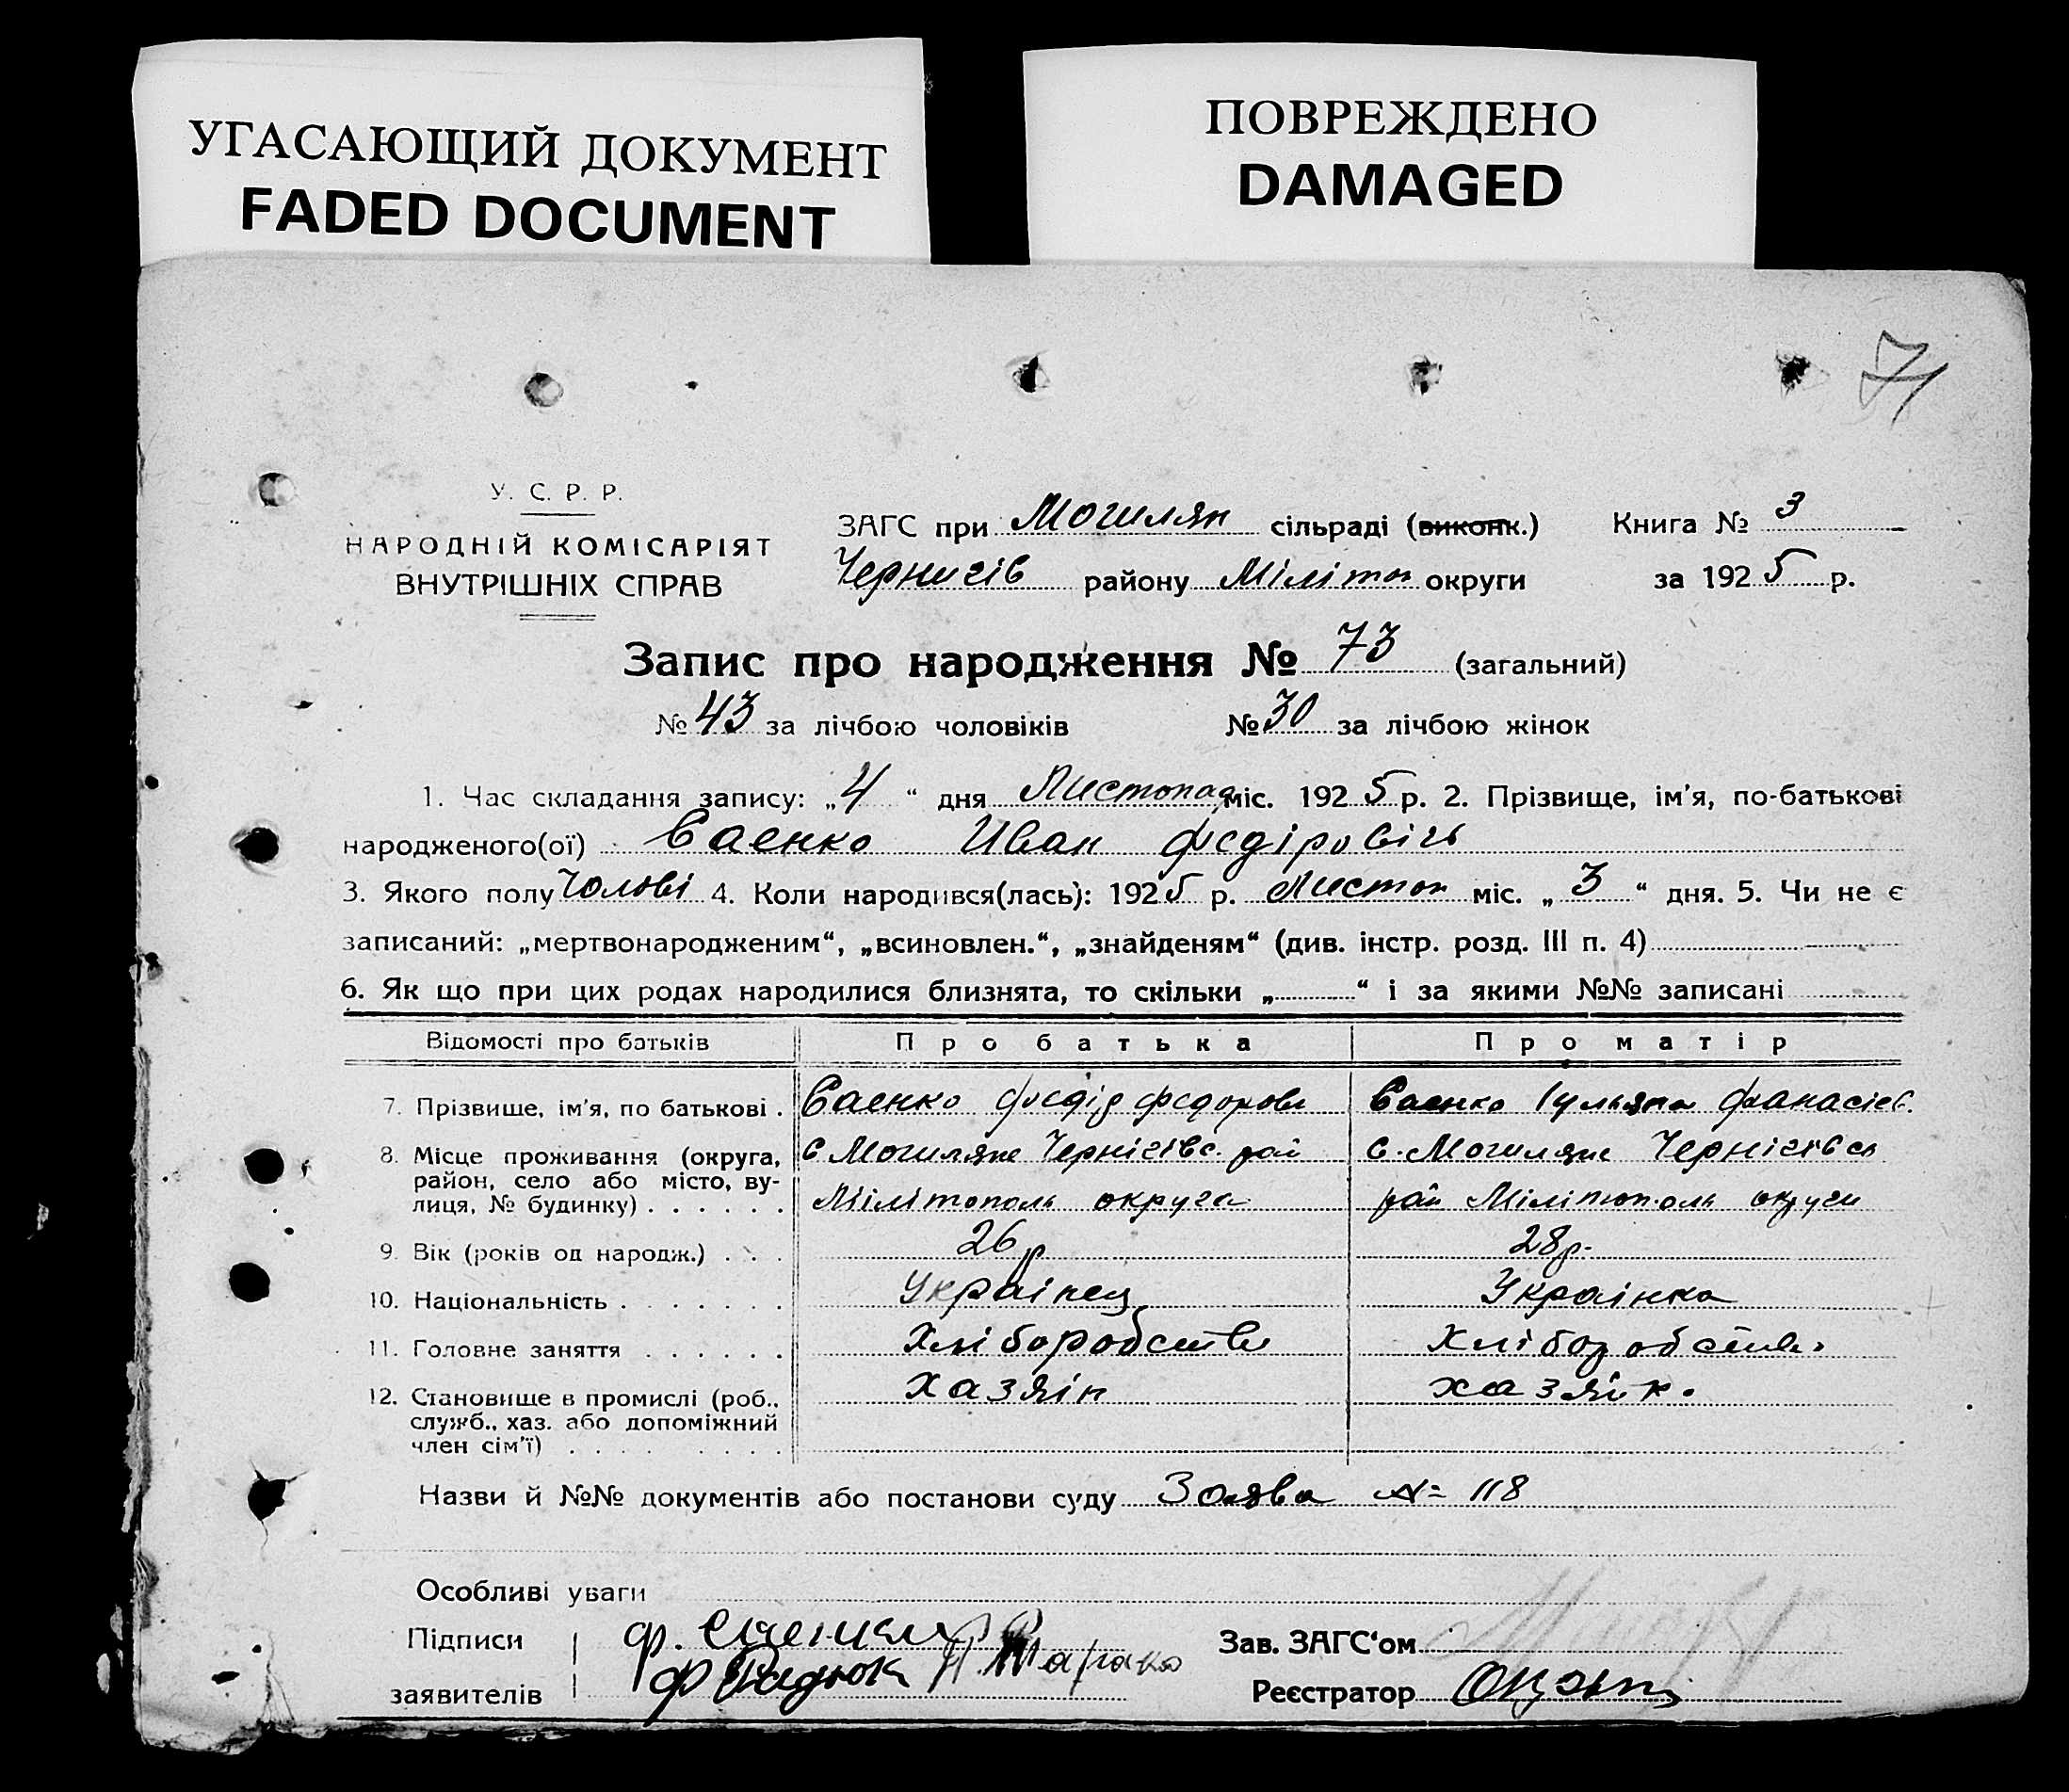 УГАСАЮЩИЙ ДОКУМЕНТ
FADED DOCUMENT
ПОВРЕЖДЕНО
DAMAGED
71
У. С. Р. Р.
НАРОДНІЙ КОМІСАРІЯТ
ВНУТРІШНІХ СПРАВ
ЗАГС при Могилян сільраді (виконк.) Книга № 3
Чернигів району Міліton округи за 1925 р.
Запис про народження № 73 (загальний)
№ 43 за лічбою чоловіків № 30 за лічбою жінок
1. Час складання запису: „4“ дня Листопад міс. 1925 р. 2. Прізвище, ім'я, по-батькові
народженого(ої) Саенко Иван Федірович
3. Якого полу Чолові 4. Коли народився(лась): 1925 р. Листоп міс. „3“ дня. 5. Чи не є
записаний: „мертвонародженим“, „всиновлен.“, „знайденям“ (див. інстр. розд. III п. 4)
6. Як що при цих родах народилися близнята, то скільки „ “ і за якими №№ записані
Відомості про батьків Про батька Про матір
7. Прізвище, ім'я, по батькові . Саенко Федір Федорови Саенко Гульяна Фанасієв.
8. Місце проживання (округа, с Могиляне Чернігівс. рай с. Могиляне Чернігівск
район, село або місто, ву-
лиця, № будинку) . . . . . . Мілітополь округа рай Мілітополь округи
9. Вік (років од народж.) . . . 26 р 28 р.
10. Національність . . . . . . . Украінец Украінка
11. Головне заняття . . . . . . Хлібороbство Хліборобство
12. Становище в промислі (роб., хазяін хазяйк.
служб., хаз. або допоміжний
член сім'ї) . . . . . . . . .
Назви й №№ документів або постанови суду Заява № 118
Особливі уваги
Підписи Ф. Саенко
заявителів
Зав. ЗАГС'ом
Реєстратор